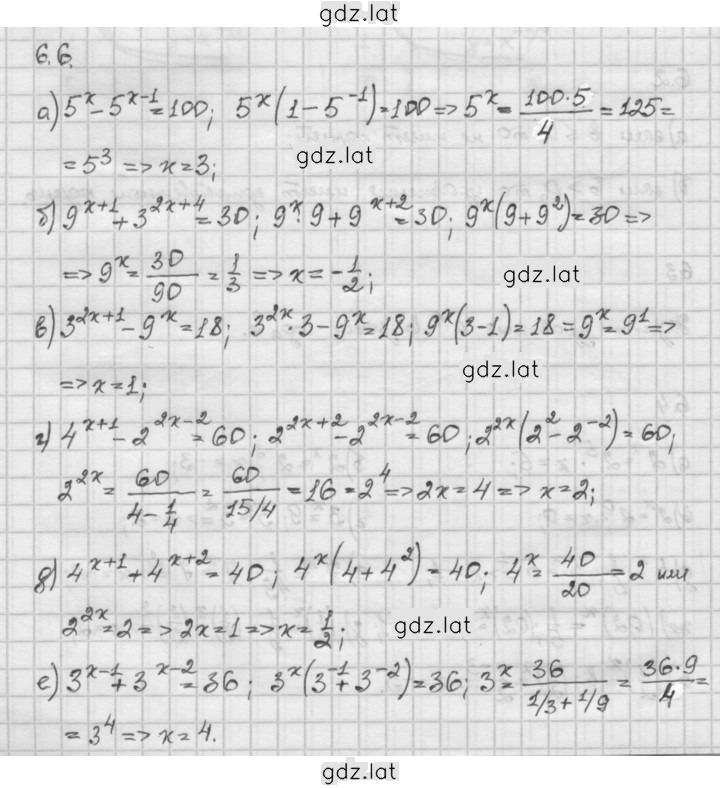 gdz.lat
6.6.
а) 5^x - 5^{x-1} = 100; 5^x(1 - 5^{-1}) = 100 => 5^x = \frac{100·5}{4} = 125 =
gdz.lat
= 5^3 => x = 3;
б) 9^{x+1} + 3^{2x+4} = 30; 9^x · 9 + 9^{x+2} = 30; 9^x(9 + 9^2) = 30 =>
=> 9^x = \frac{30}{90} = \frac{1}{3} => x = -\frac{1}{2};
gdz.lat
в) 3^{2x+1} - 9^x = 18; 3^{2x} · 3 - 9^x = 18; 9^x(3 - 1) = 18 = 9^x = 9^1 =>
gdz.lat
=> x = 1;
г) 4^{x+1} - 2^{2x-2} = 60; 2^{2x+2} - 2^{2x-2} = 60; 2^{2x}(2^2 - 2^{-2}) = 60;
2^{2x} = \frac{60}{4 - \frac{1}{4}} = \frac{60}{15/4} = 16 = 2^4 => 2x = 4 => x = 2;
д) 4^{x+1} + 4^{x+2} = 40; 4^x(4 + 4^2) = 40; 4^x = \frac{40}{20} = 2 или
2^{2x} = 2 => 2x = 1 => x = \frac{1}{2};
gdz.lat
е) 3^{x-1} + 3^{x-2} = 36; 3^x(3^{-1} + 3^{-2}) = 36; 3^x = \frac{36}{1/3 + 1/9} = \frac{36·9}{4} =
= 3^4 => x = 4.
gdz.lat